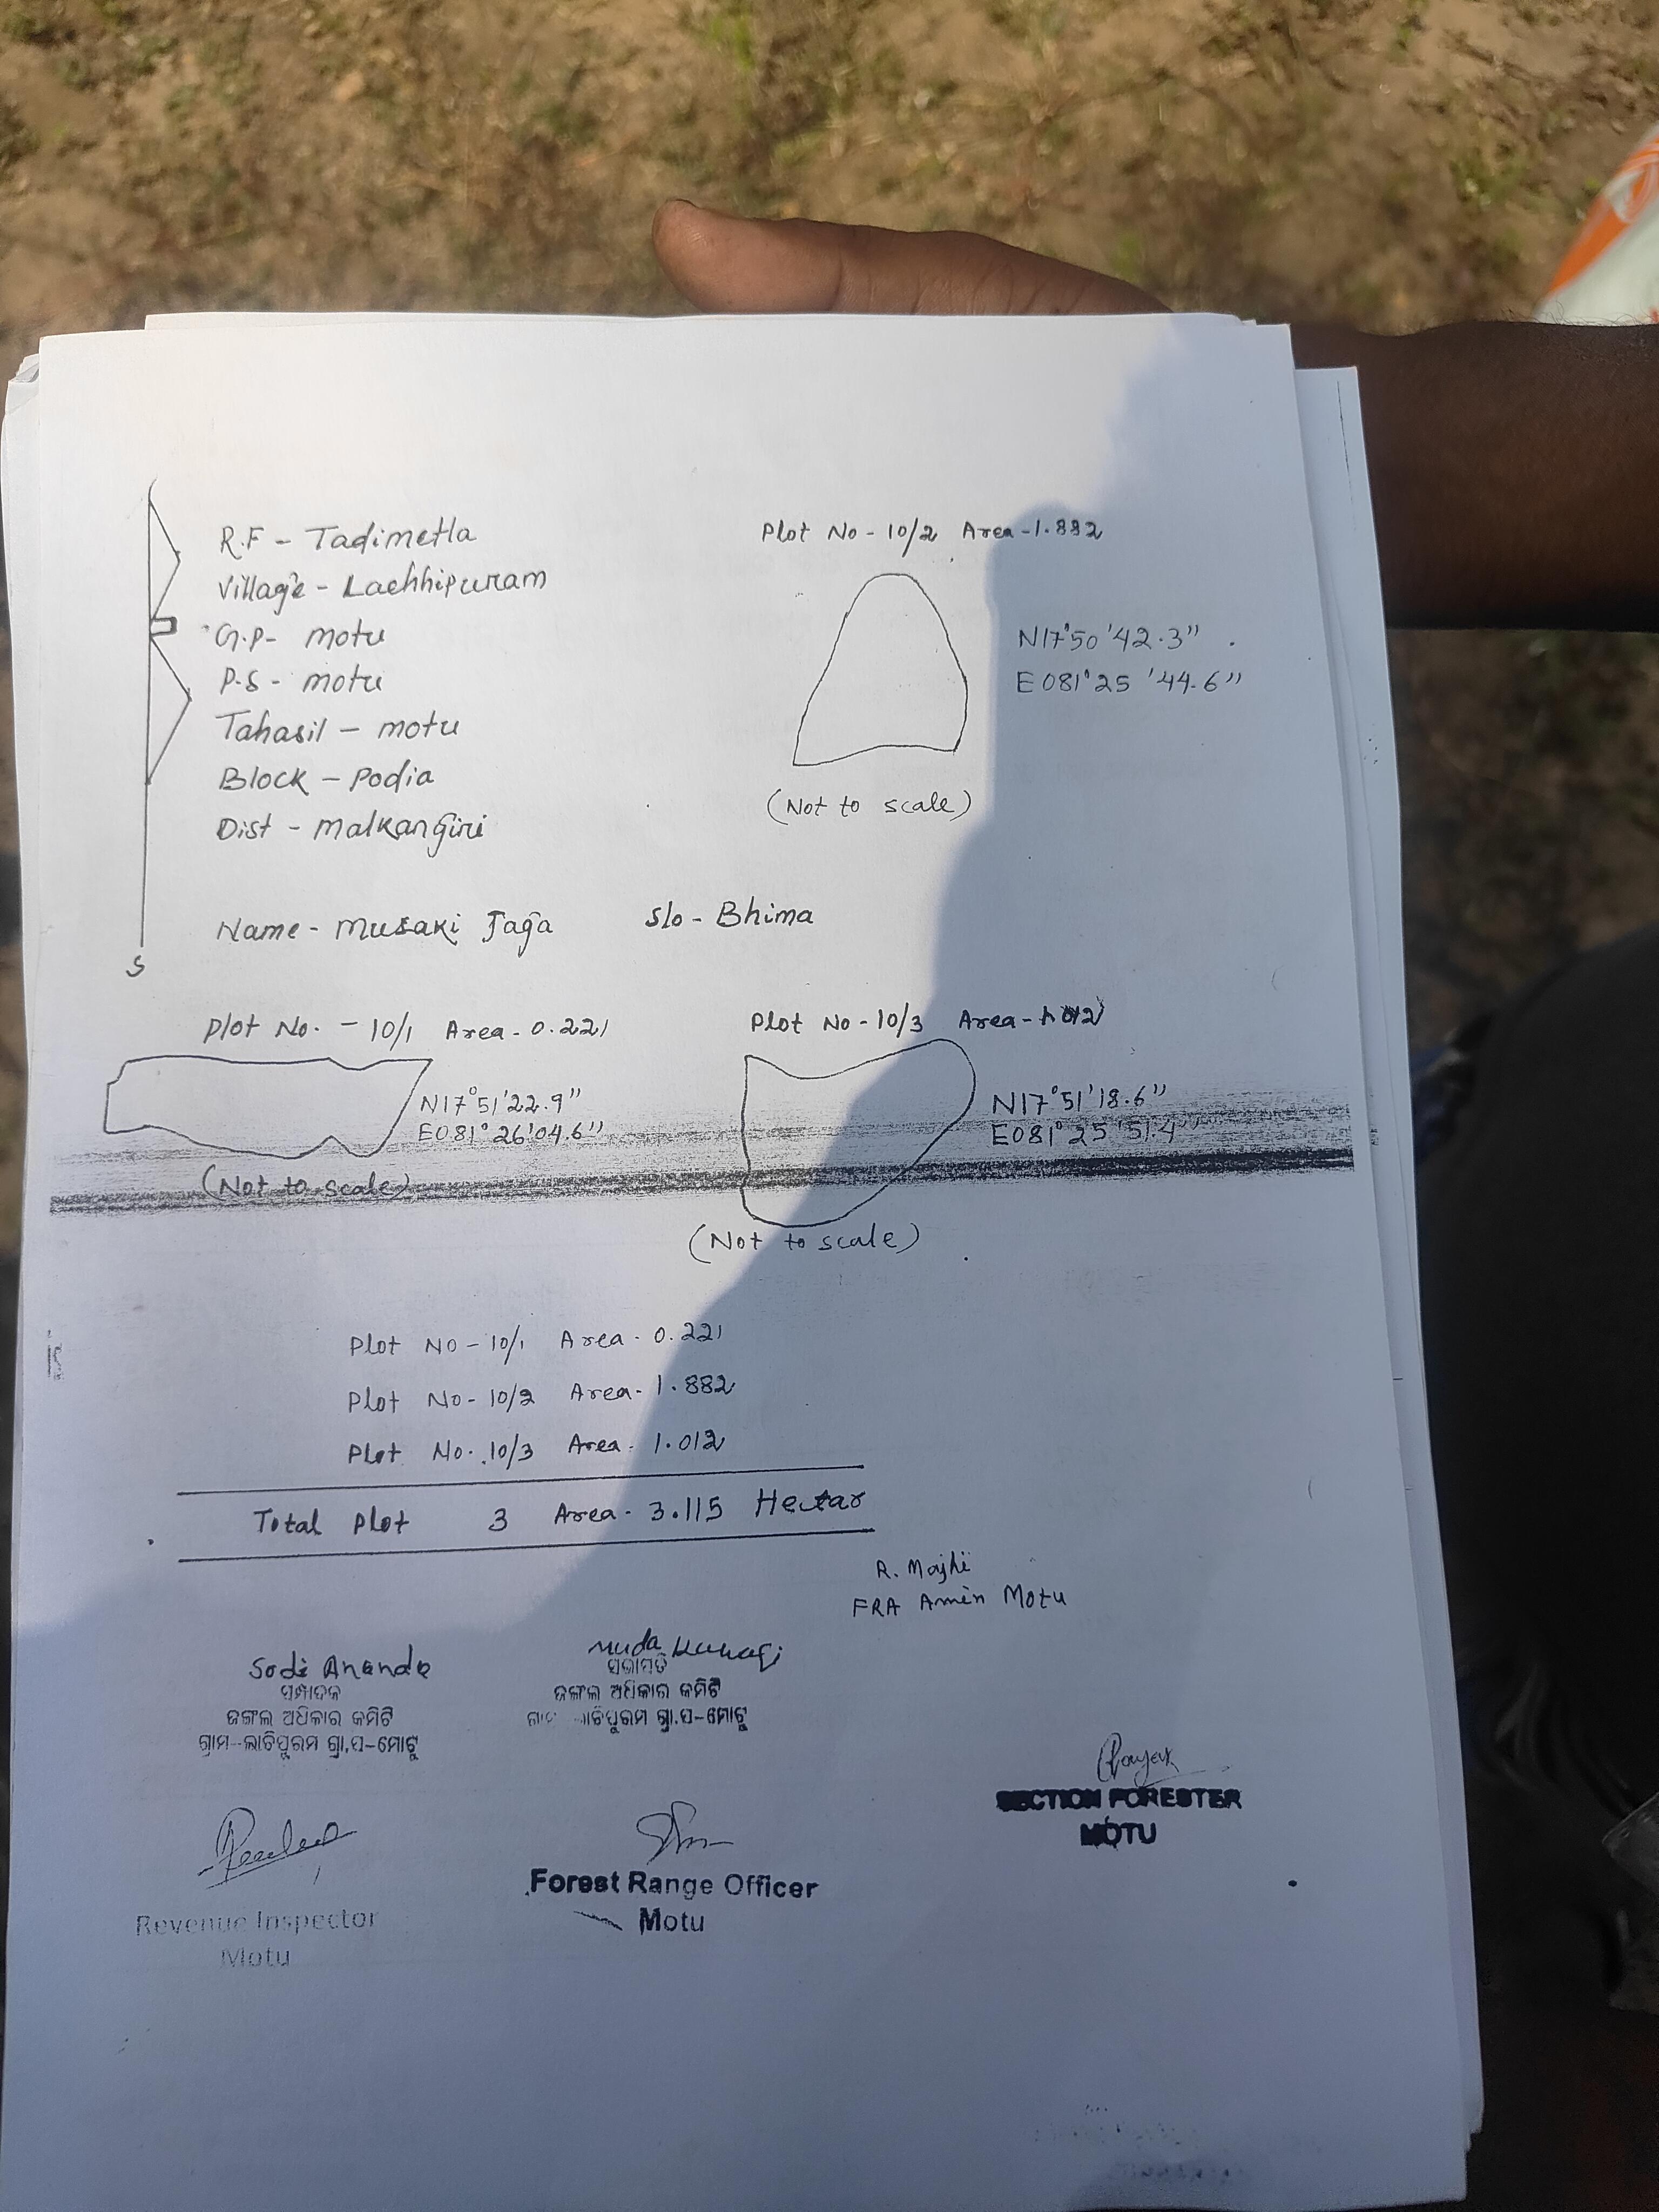 R.F - Tadimetla
Village - Lachhipuram
G.P- motu
P.S- motu
Tahasil - motu
Block - Podia
Dist - Malkangiri
Plot No - 10/2 Area -1.882
N17°50'42.3"
E081°25'44.6"
(Not to scale)
Name - Musaki Jaga S/o - Bhima
S
Plot No. - 10/1 Area - 0.221
N17°51'22.9"
E081°26'04.6"
(Not to scale)
Plot No - 10/3 Area - 1.012
N17°51'18.6"
E081°25'51.4"
(Not to scale)
Plot No - 10/1 Area - 0.221
Plot No - 10/2 Area - 1.882
Plot No. 10/3 Area - 1.012
Total Plot 3 Area - 3.115 Hectar
R. Majhi
FRA Amin Motu
Sodi Ananda
ସମ୍ପାଦକ
ଜଙ୍ଗଲ ଅଧିକାର କମିଟି
ଗ୍ରାମ-ଲାଚିପୁରମ ଗ୍ରା.ପ-ମୋଟୁ
Muda
ସଭାପତି
ଜଙ୍ଗଲ ଅଧିକାର କମିଟି
ଲାଚିପୁରମ ଗ୍ରା.ପ-ମୋଟୁ
SECTION FORESTER
MOTU
Revenue Inspector
Motu
Forest Range Officer
Motu